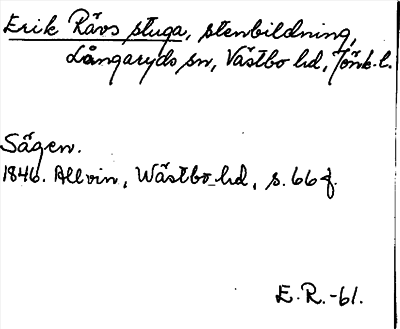 Erik Rävs stuga, stenbildning,
Långaryds sn, Västbo hd, Jönk.l.
Sägen.
1846. Allvin, Wästbo hd, s. 66 f.
E.R.-61.